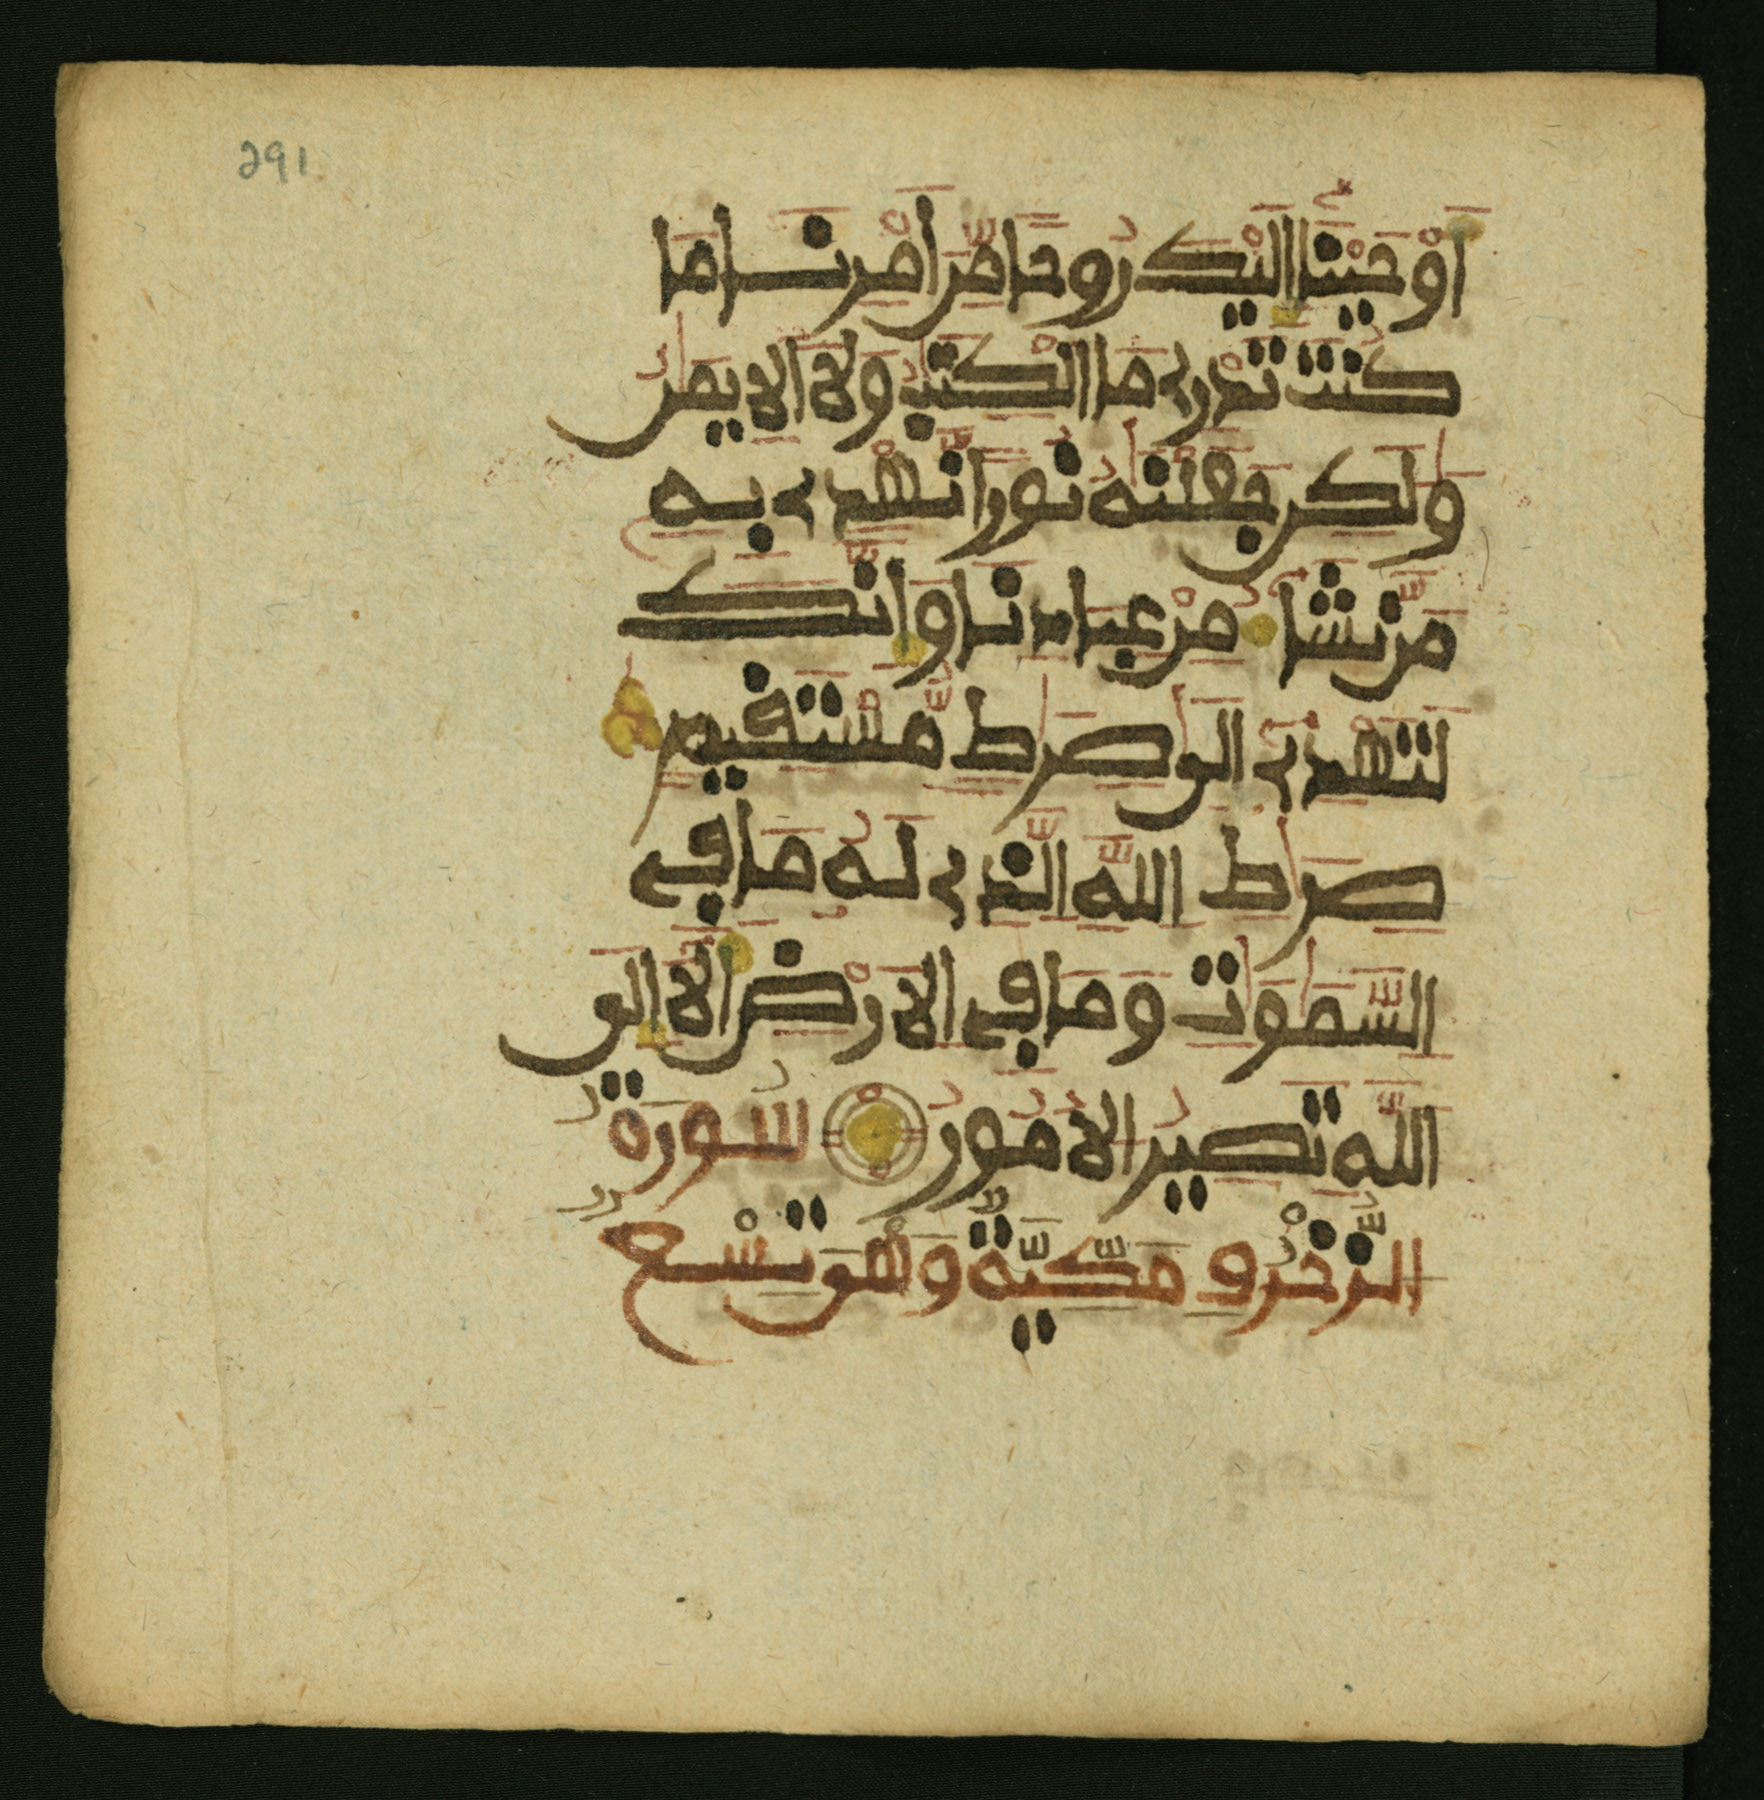 291
أَوْحَيْنَا إِلَيْكَ رُوحًا مِّنَ امْرِنَا مَا
كُنتَ تَدْرِے مَا اَلْكِتَٰبُ وَلَا اَلِايمَٰنُ
وَلَٰكِن جَعَلْنَٰهُ نُورًا نَّهْدِے بِهِ
مَن نَّشَآءُ مِنْ عِبَادِنَا وَإِنَّكَ
لَتَهْدِے إِلَىٰ صِرَٰطٍ مُّسْتَقِيمٍ
صِرَٰطِ اِللَّهِ اِلَّذِے لَهُ مَا فِے
اَلسَّمَٰوَٰتِ وَمَا فِے اِلَارْضِ أَلَا إِلَى
اَللَّهِ تَصِيرُ اُلُامُورُ سُورَةُ
الزُّخْرُفِ مَكِّيَّةٌ وَهْىَ تِسْعٌ